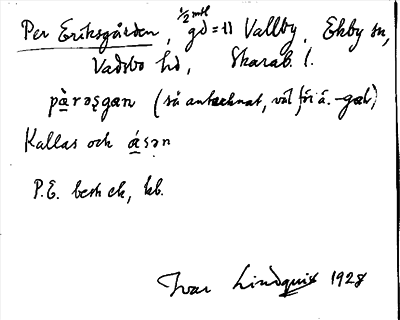 Per Eriksgården, 1/2 mtl gd = 11 Vallby, Ekby sn,
Vadsbo hd, Skarab. l.
pàrəsgan (så antecknat, väl för å. -gal)
Kallas och ásən
P.E. besk ek, kb.
Ivar Lindquist 1928